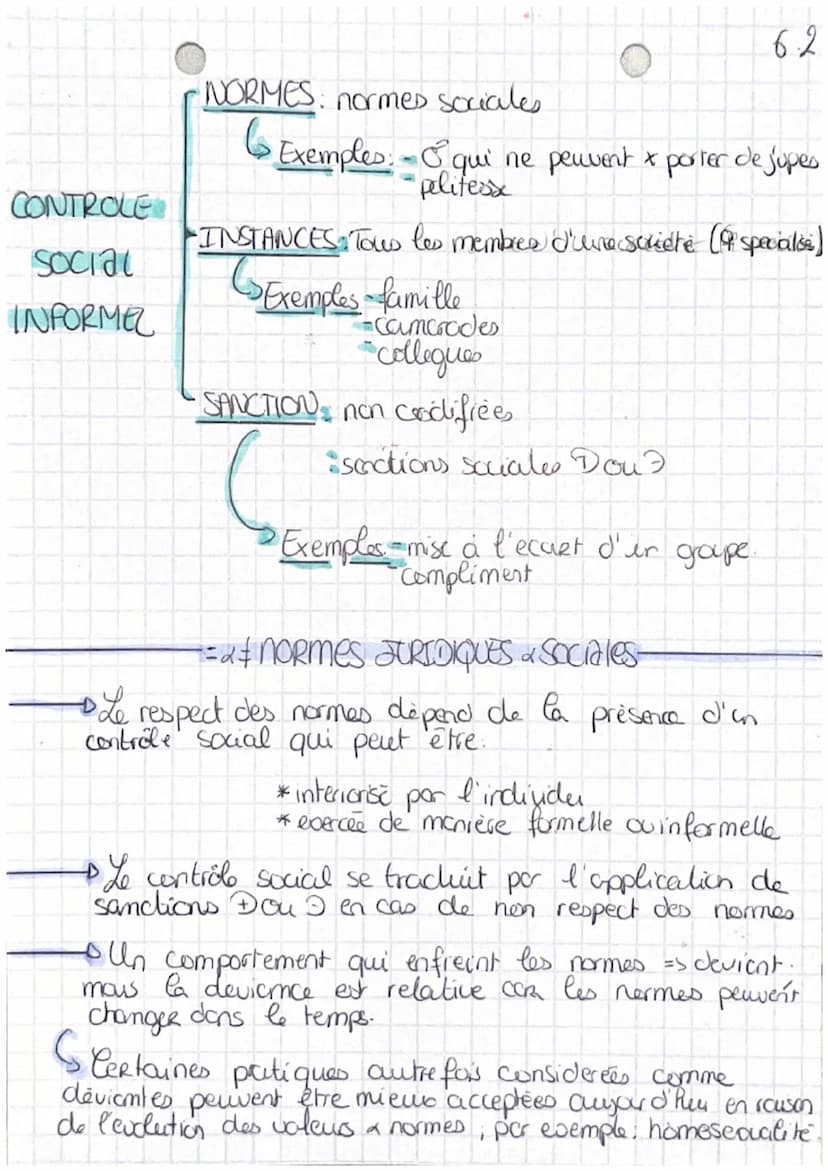 6.2
NORMES : normes sociales
Exemples : - ♂ qui ne peuvent x porter de jupes
- politesse
CONTROLE
SOCIAL
INFORMEL
INSTANCES : Tous les membres d'une société
Exemples - famille
- camarades
- collegues
SANCTION : non codifiées
: sanctions sociales ⊕ ou ⊖
Exemples - mise à l'ecart d'un groupe.
- compliment
= & ≠ NORMES JURIDIQUES & SOCIALES
Le respect des normes dépend de la présence d'un
contrôle social qui peut être :
* interiorisé par l'individu
* exercée de manière formelle ou informelle
Le contrôle social se traduit par l'application de
sanctions ⊕ ou ⊖ en cas de non respect des normes
Un comportement qui enfreint les normes => devient.
mais la deviance est relative car les normes peuvent
changer dans le temps.
Certaines pratiques autrefois considerées comme
déviantes peuvent être mieux acceptées aujourd'hui en raison
de l'evolution des valeurs & normes, par exemple : homosexualité.